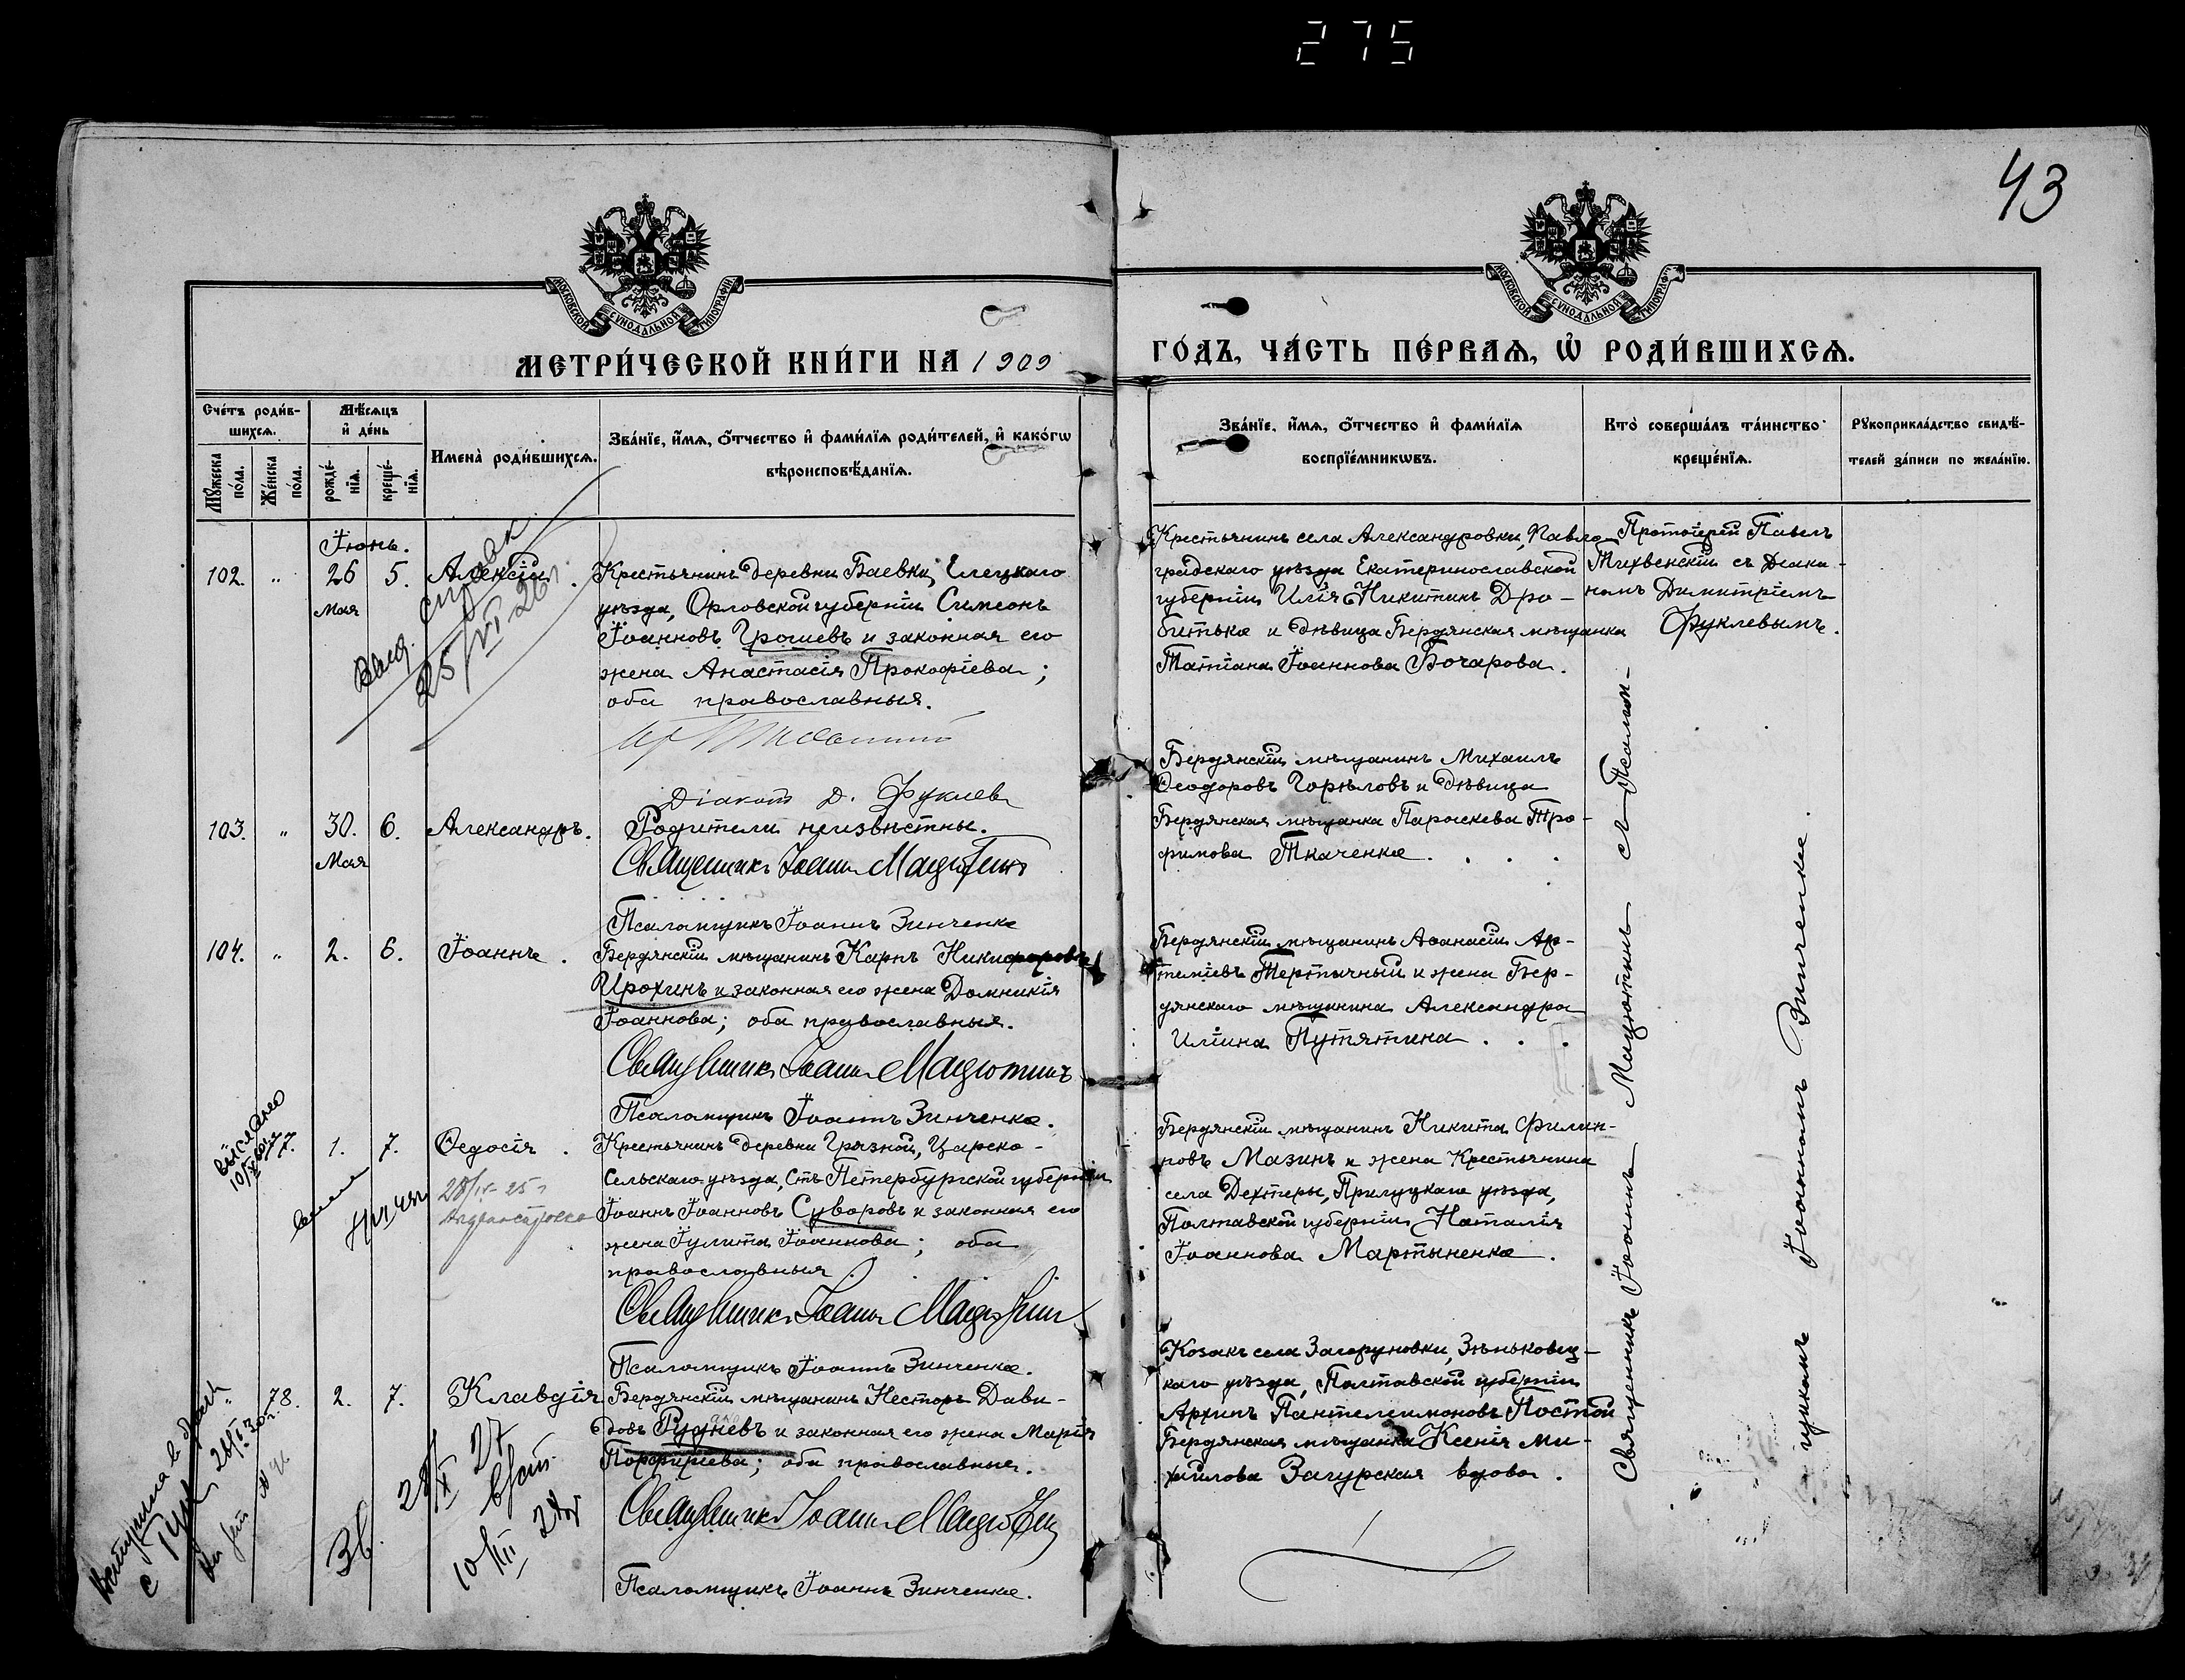 275
43
МОСКОВСКОЙ СѴНОДАЛЬНОЙ ТИПОГРАФІИ
МОСКОВСКОЙ СѴНОДАЛЬНОЙ ТИПОГРАФІИ
МЕТРИ́ЧЕСКОЙ КНИ́ГИ НА 1909
ГО́ДЪ, ЧА́СТЬ ПЕ́РВАѦ, Ѽ РОДИ́ВШИХСѦ.
Сче́тъ роди́в-
шихсѧ.
Мꙋ́жеска по́ла.
Же́нска по́ла.
Мѣ́сѧцъ
и҆ де́нь
рожде́-
нїѧ.
креще́-
нїѧ.
Имена̀ роди́вшихсѧ.
Зва́нїе, и҆́мѧ, ѻ҆́тчество и҆ фами́лїѧ роди́телей, и҆ како́гѡ
вѣроисповѣ́данїѧ.
Зва́нїе, и҆́мѧ, ѻ҆́тчество и҆ фами́лїѧ
воспрїе́мникѡвъ.
Кто̀ соверша́лъ та́инство
креще́нїѧ.
Рꙋкоприкла́дство свидѣ́-
телей за́писи по жела́нїю.
Іюнь.
102. " 26 5. Алексій.
Мая
25/VI 26
Крестьянинъ деревни Баевки, Елецкаго
уѣзда, Орловской губерніи Симеонъ
Іоанновъ Грошевъ и законная его
жена Анастасія Прокофіева;
оба православныя.
Діаконъ Д. Фуклев
Крестьянинъ села Александровки, Павло-
градскаго уѣзда Екатеринославской
губерніи Илія Никитинъ Дро-
битько и дѣвица Бердянская мѣщанка
Татіана Іоаннова Бочарова.
Протоіерей Павелъ
Тихвенскій съ Діако-
номъ Димитріемъ
Фуклевымъ.
103. " 30. 6. Александръ.
Мая
Родители неизвѣстны.
Священникъ Іоаннъ Мацютинъ
Псаломщикъ Іоаннъ Зинченко
Бердянскій мѣщанинъ Михаилъ
Ѳеодоровъ Горѣловъ и дѣвица
Бердянская мѣщанка Параскева Тро-
фимова Ткаченко.
104. " 2. 6. Іоаннъ.
Бердянскій мѣщанинъ Карпъ Никифоровъ
Ирохинъ и законная его жена Домникія
Іоаннова; оба православныя.
Священникъ Іоаннъ Мацютинъ
Псаломщикъ Іоаннъ Зинченко.
Бердянскій мѣщанинъ Аѳанасій Ар-
теміевъ Тертычный и жена Бер-
дянскаго мѣщанина Александра
Иліина Путятина.
77. 1. 7. Ѳедосія.
Крестьянинъ деревни Грязной, Царско-
сельскаго уѣзда, Стъ Петербургской губерніи
Іоаннъ Іоанновъ Суворовъ и законная его
жена Іулита Іоаннова; оба
православныя.
Священникъ Іоаннъ Мацютинъ
Псаломщикъ Іоаннъ Зинченко.
Бердянскій мѣщанинъ Никита Филип-
повъ Мазинъ и жена Крестьянина
села Дехтеры, Прилуцкаго уѣзда,
Полтавской губерніи Наталія
Іоаннова Мартыненко.
" 78. 2. 7. Клавдія
Бердянскій мѣщанинъ Несторъ Дави-
довъ Рудневъ и законная его жена Марія
Порфиріева; оба православныя.
Священникъ Іоаннъ Мацютинъ
Псаломщикъ Іоаннъ Зинченко.
Козакъ села Загоруновки, Зѣньковец-
каго уѣзда, Полтавской губерніи
Архипъ Пантелеимоновъ Постой
Бердянская мѣщанка Ксенія Ми-
хаилова Загурская вдова.
Священникъ Іоаннъ Мацютинъ съ Псалом-
щикомъ Іоанномъ Зинченко.